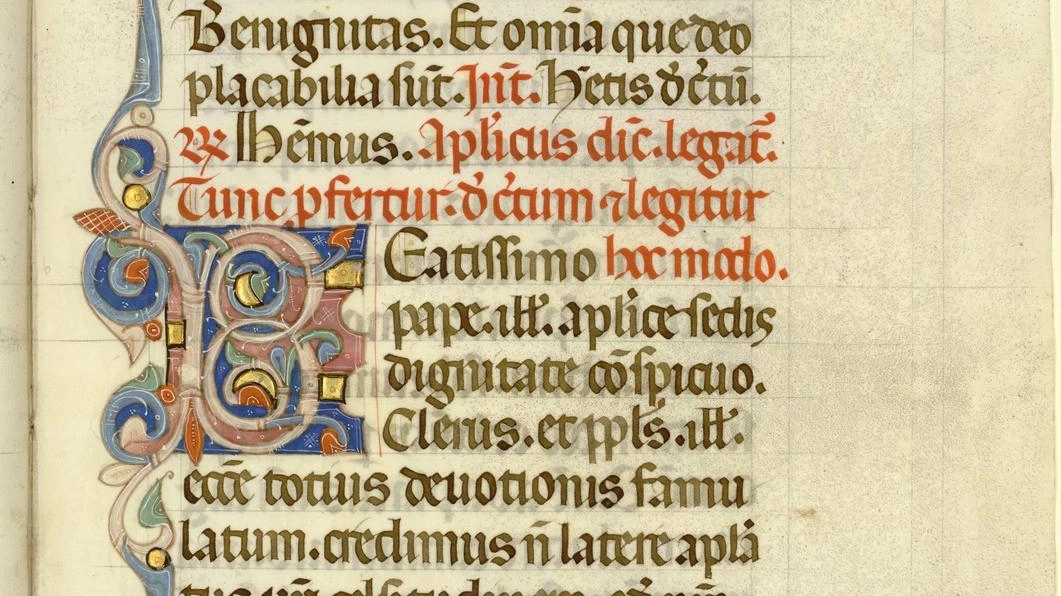 Benignitas. Et om̄ia que deo
placabilia sūt. Int̄. Hetis d̓c̓tū.
R̸ Hēmus. Aplicus dic̄. legat̄.
Tunc ꝓfertur. d̓c̓tum ⁊ legitur
Beatissimo hoc modo.
pape. ill̄. aplice sedis
dignitate cōspicuo.
Clerus. et ppl̄s. ill̄.
eccē totius deuotionis famu
latum. credimus n̄ latere aplā